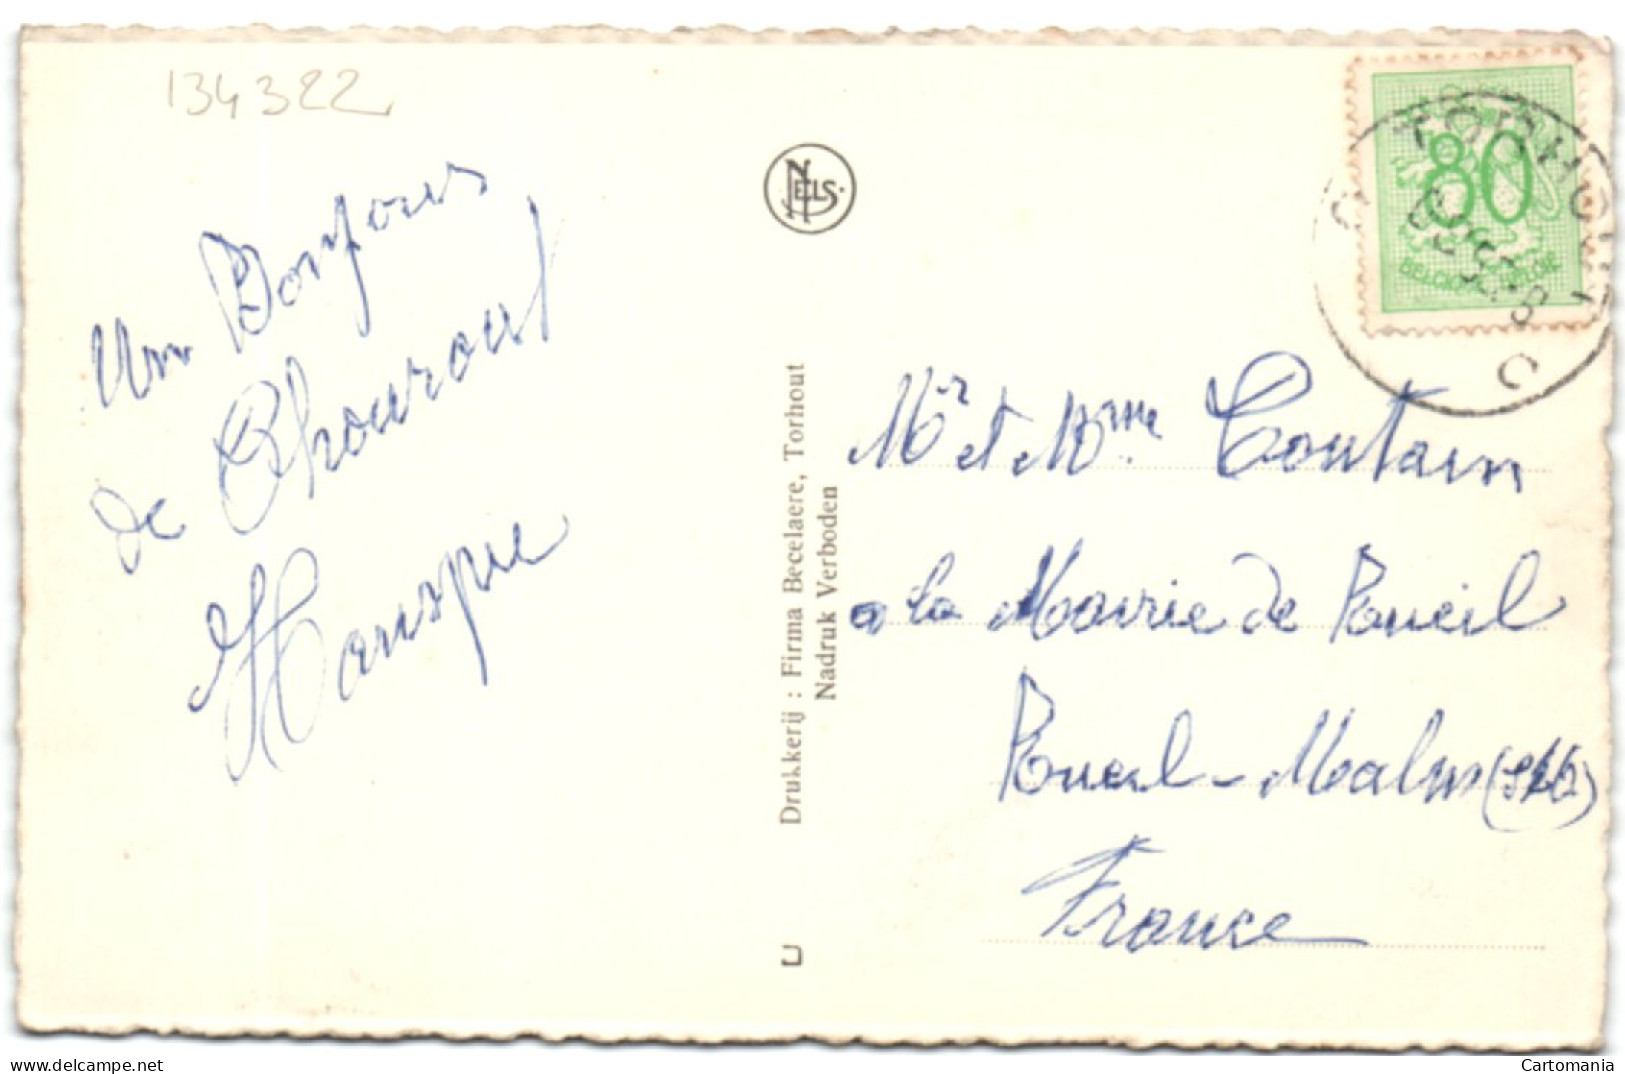 134322
Un Bonjour
de Thourout
NELS
Drukkerij : Firma Becelaere, Torhout
Nadruk Verboden
U
80
BELGIQUE BELGIE
TORHOUT
Mr et Mme Coutain
a la Mairie de Rueil
Rueil-Malm (S&O)
France
delcampe.net
Cartomania